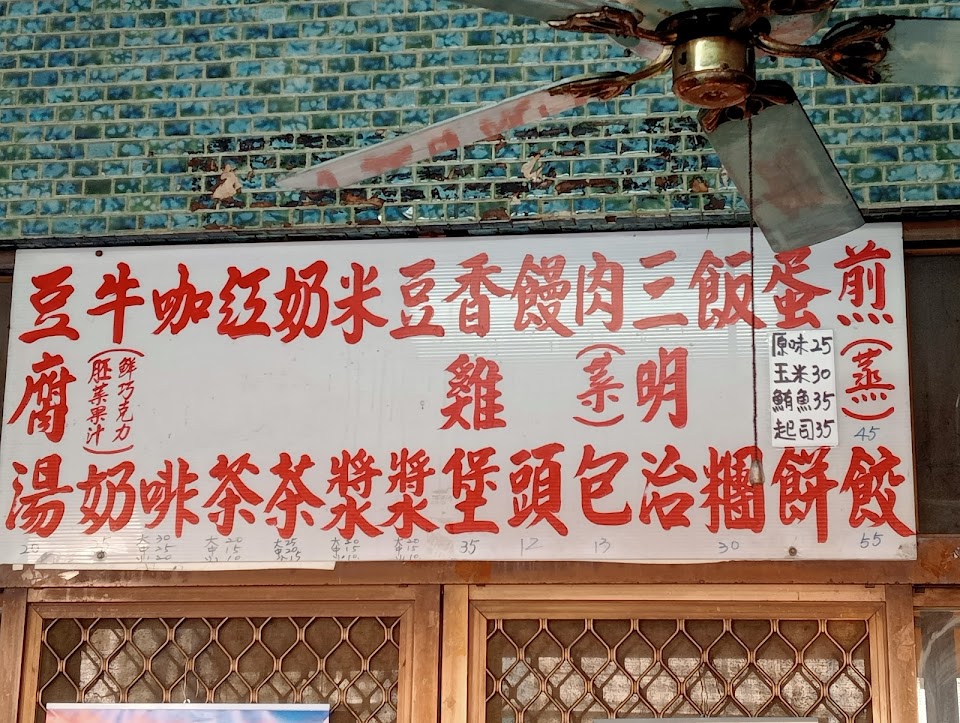 煎(蒸)餃
45
55
蛋餅
原味25
玉米30
鮪魚35
起司35
飯糰
30
三明治
肉(菜)包
13
饅頭
12
香雞堡
35
豆漿
大20
中15
小10
米漿
大20
中15
小10
奶茶
大25
中20
小15
紅茶
大20
中15
小10
咖啡
大30
中25
小20
牛奶
(鮮巧克力
胚菜果汁)
豆腐湯
20